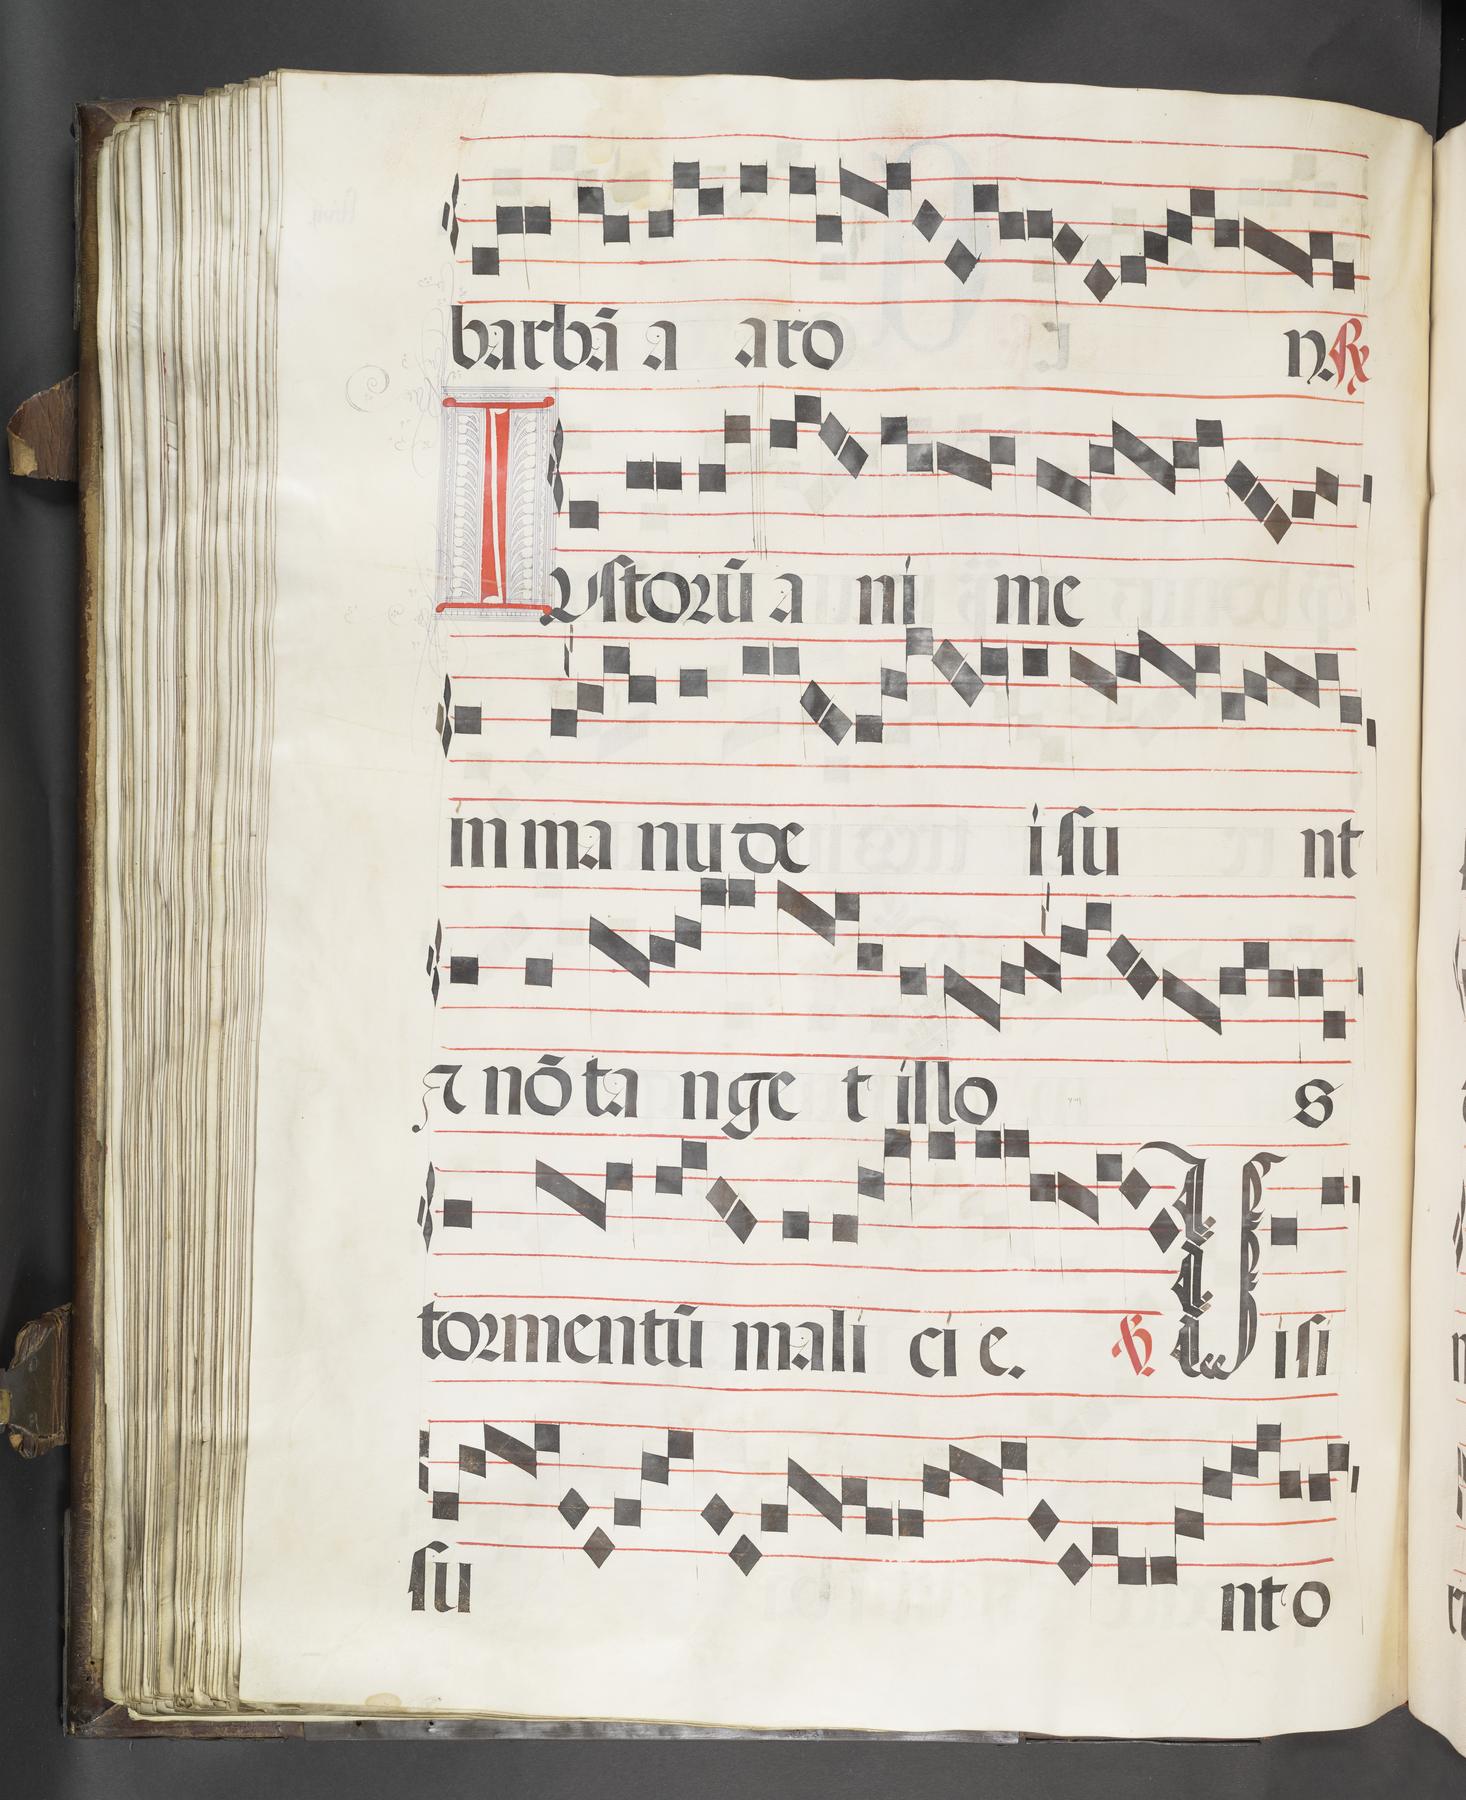 barbā a aro n. ℟
Iustorū a ni me
in ma nu de i su nt
⁊ nō ta nge t illo s
tormentū mali ci e. ℣ Visi
su nt o